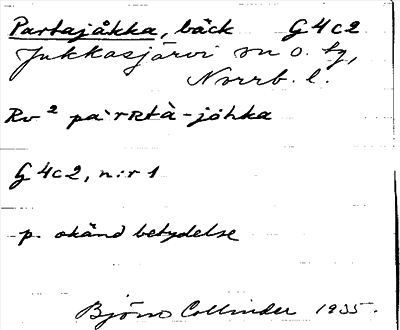 Partajåkka, bäck G4c2
Jukkasjärvi sn o. tg,
Norrb. l.
Rv² pa·rRtà-jåhka
G4c2, n:r 1
p. okänd betydelse
Björn Collinder 1935.